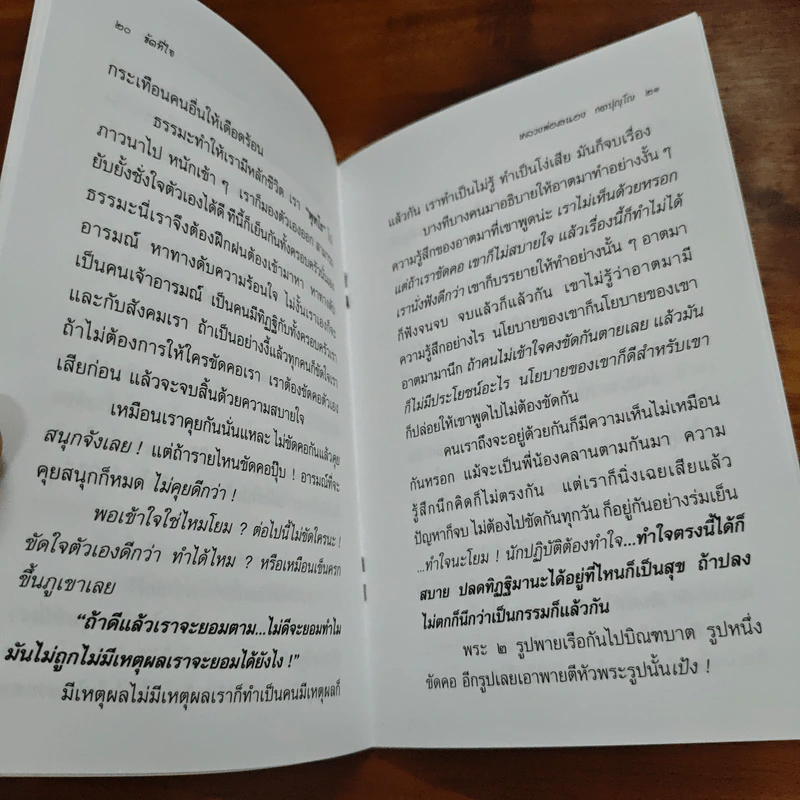 ๒๐ ขัดที่ใจ
กระเทือนคนอื่นให้เดือดร้อน
ธรรมะทำให้เรามีหลักชีวิต เรา "พุทโธ" ไป
ภาวนาไป หนักเข้า ๆ เราก็มองตัวเองออก สามารถ
ยับยั้งชั่งใจตัวเองได้ดี ทีนี้ก็เย็นกันทั้งครอบครัว
ธรรมะนี่เราจึงต้องฝึกฝนต้องเข้ามาหา หาทางดับ
อารมณ์ หาทางดับความร้อนใจ ไม่งั้นเราเองก็จะ
เป็นคนเจ้าอารมณ์ เป็นคนมีทิฏฐิกับทั้งครอบครัวเรา
และกับสังคมเรา ถ้าเป็นอย่างงี้แล้วทุกคนก็ขัดใจเรา
ถ้าไม่ต้องการให้ใครขัดคอเรา เราต้องขัดคอตัวเอง
เสียก่อน แล้วจะจบสิ้นด้วยความสบายใจ
เหมือนเราคุยกันนั่นแหละ ไม่ขัดคอกันแล้วคุย
สนุกจังเลย ! แต่ถ้ารายไหนขัดคอปุ๊บ ! อารมณ์ที่จะ
คุยสนุกก็หมด ไม่คุยดีกว่า !
พอเข้าใจใช่ไหมโยม ? ต่อไปนี้ไม่ขัดใครนะ !
ขัดใจตัวเองดีกว่า ทำได้ไหม ? หรือเหมือนเข็นครก
ขึ้นภูเขาเลย
"ถ้าดีแล้วเราจะยอมตาม...ไม่ดีจะยอมทำไม
มันไม่ถูกไม่มีเหตุผลเราจะยอมได้ยังไง !"
มีเหตุผลไม่มีเหตุผลเราก็ทำเป็นคนมีเหตุผลก็
หลวงพ่อสนอง กตปุญฺโญ ๒๑
แล้วกัน เราทำเป็นไม่รู้ ทำเป็นโง่เสีย มันก็จบเรื่อง
บางทีบางคนมาอธิบายให้อาตมาทำอย่างงั้น ๆ
ความรู้สึกของอาตมาที่เขาพูดน่ะ เราไม่เห็นด้วยหรอก
แต่ถ้าเราขัดคอ เขาก็ไม่สบายใจ แล้วเรื่องนี้ก็ทำไม่ได้
เรานั่งฟังดีกว่า เขาก็บรรยายให้ทำอย่างนั้น ๆ อาตมา
ก็ฟังจนจบ จบแล้วก็แล้วกัน เขาไม่รู้ว่าอาตมามี
ความรู้สึกอย่างไร นโยบายของเขาก็นโยบายของเขา
อาตมามานึก ถ้าคนไม่เข้าใจคงขัดกันตายเลย แล้วมัน
ก็ไม่มีประโยชน์อะไร นโยบายของเขาก็ดีสำหรับเขา
ก็ปล่อยให้เขาพูดไปไม่ต้องขัดกัน
คนเราถึงจะอยู่ด้วยกันก็มีความเห็นไม่เหมือน
กันหรอก แม้จะเป็นพี่น้องคลานตามกันมา ความ
รู้สึกนึกคิดก็ไม่ตรงกัน แต่เราก็นิ่งเฉยเสียแล้ว
ปัญหาก็จบ ไม่ต้องไปขัดกันทุกวัน ก็อยู่กันอย่างร่มเย็น
...ทำใจนะโยม ! นักปฏิบัติต้องทำใจ...ทำใจตรงนี้ได้ก็
สบาย ปลดทิฏฐิมานะได้อยู่ที่ไหนก็เป็นสุข ถ้าปลง
ไม่ตกก็นึกว่าเป็นกรรมก็แล้วกัน
พระ ๒ รูปพายเรือกันไปบิณฑบาต รูปหนึ่ง
ขัดคอ อีกรูปเลยเอาพายตีหัวพระรูปนั้นเป้ง !